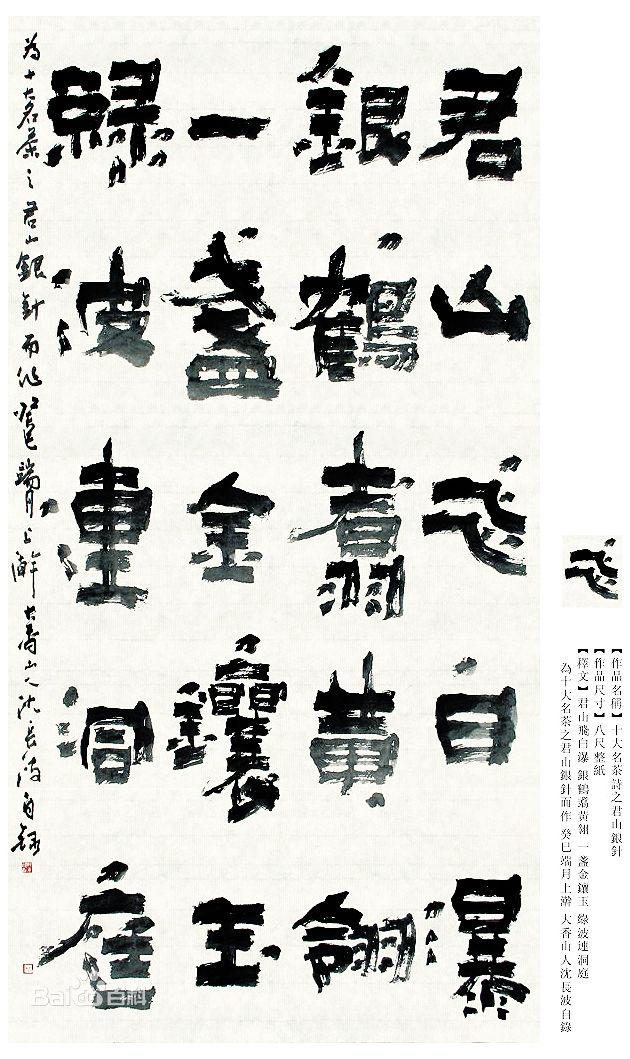 君山飛白瀑
銀鶴翥黃翎
一盞金鑲玉
綠波連洞庭
為十大名茶之君山銀針而作 癸巳端月上澣 大香山人沈長波自錄
飛
【作品名稱】十大名茶詩之君山銀針
【作品尺寸】八尺整紙
【釋文】君山飛白瀑 銀鶴翥黃翎 一盞金鑲玉 綠波連洞庭
為十大名茶之君山銀針而作 癸巳端月上澣 大香山人沈長波自錄
Bai百科